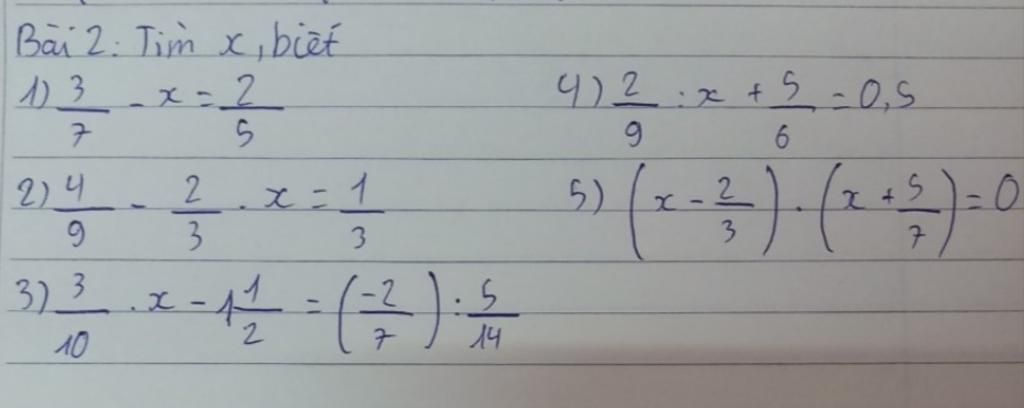 Bài 2: Tìm x, biết
1) 3/7 - x = 2/5
4) 2/9 : x + 5/6 = 0,5
2) 4/9 - 2/3 . x = 1/3
5) (x - 2/3) . (x + 5/7) = 0
3) 3/10 . x - 1 1/2 = (-2/7) : 5/14